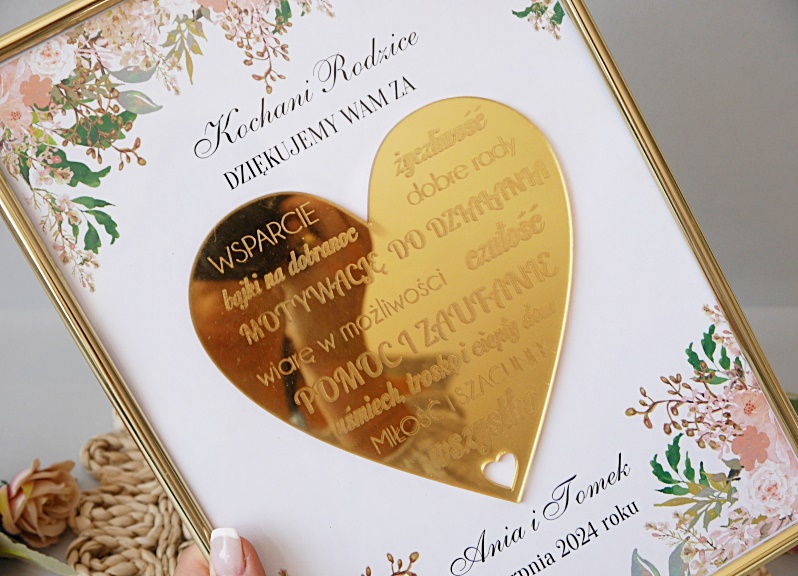 Kochani Rodzice
DZIĘKUJEMY WAM ZA
życzliwość
dobre rady
WSPARCIE
bajki na dobranoc
MOTYWACJĘ DO DZIAŁANIA
wiarę w możliwości czułość
POMOC I ZAUFANIE
uśmiech, troskę i ciepły dom
MIŁOŚĆ I SZACUNEK
Ania i Tomek
2024 roku